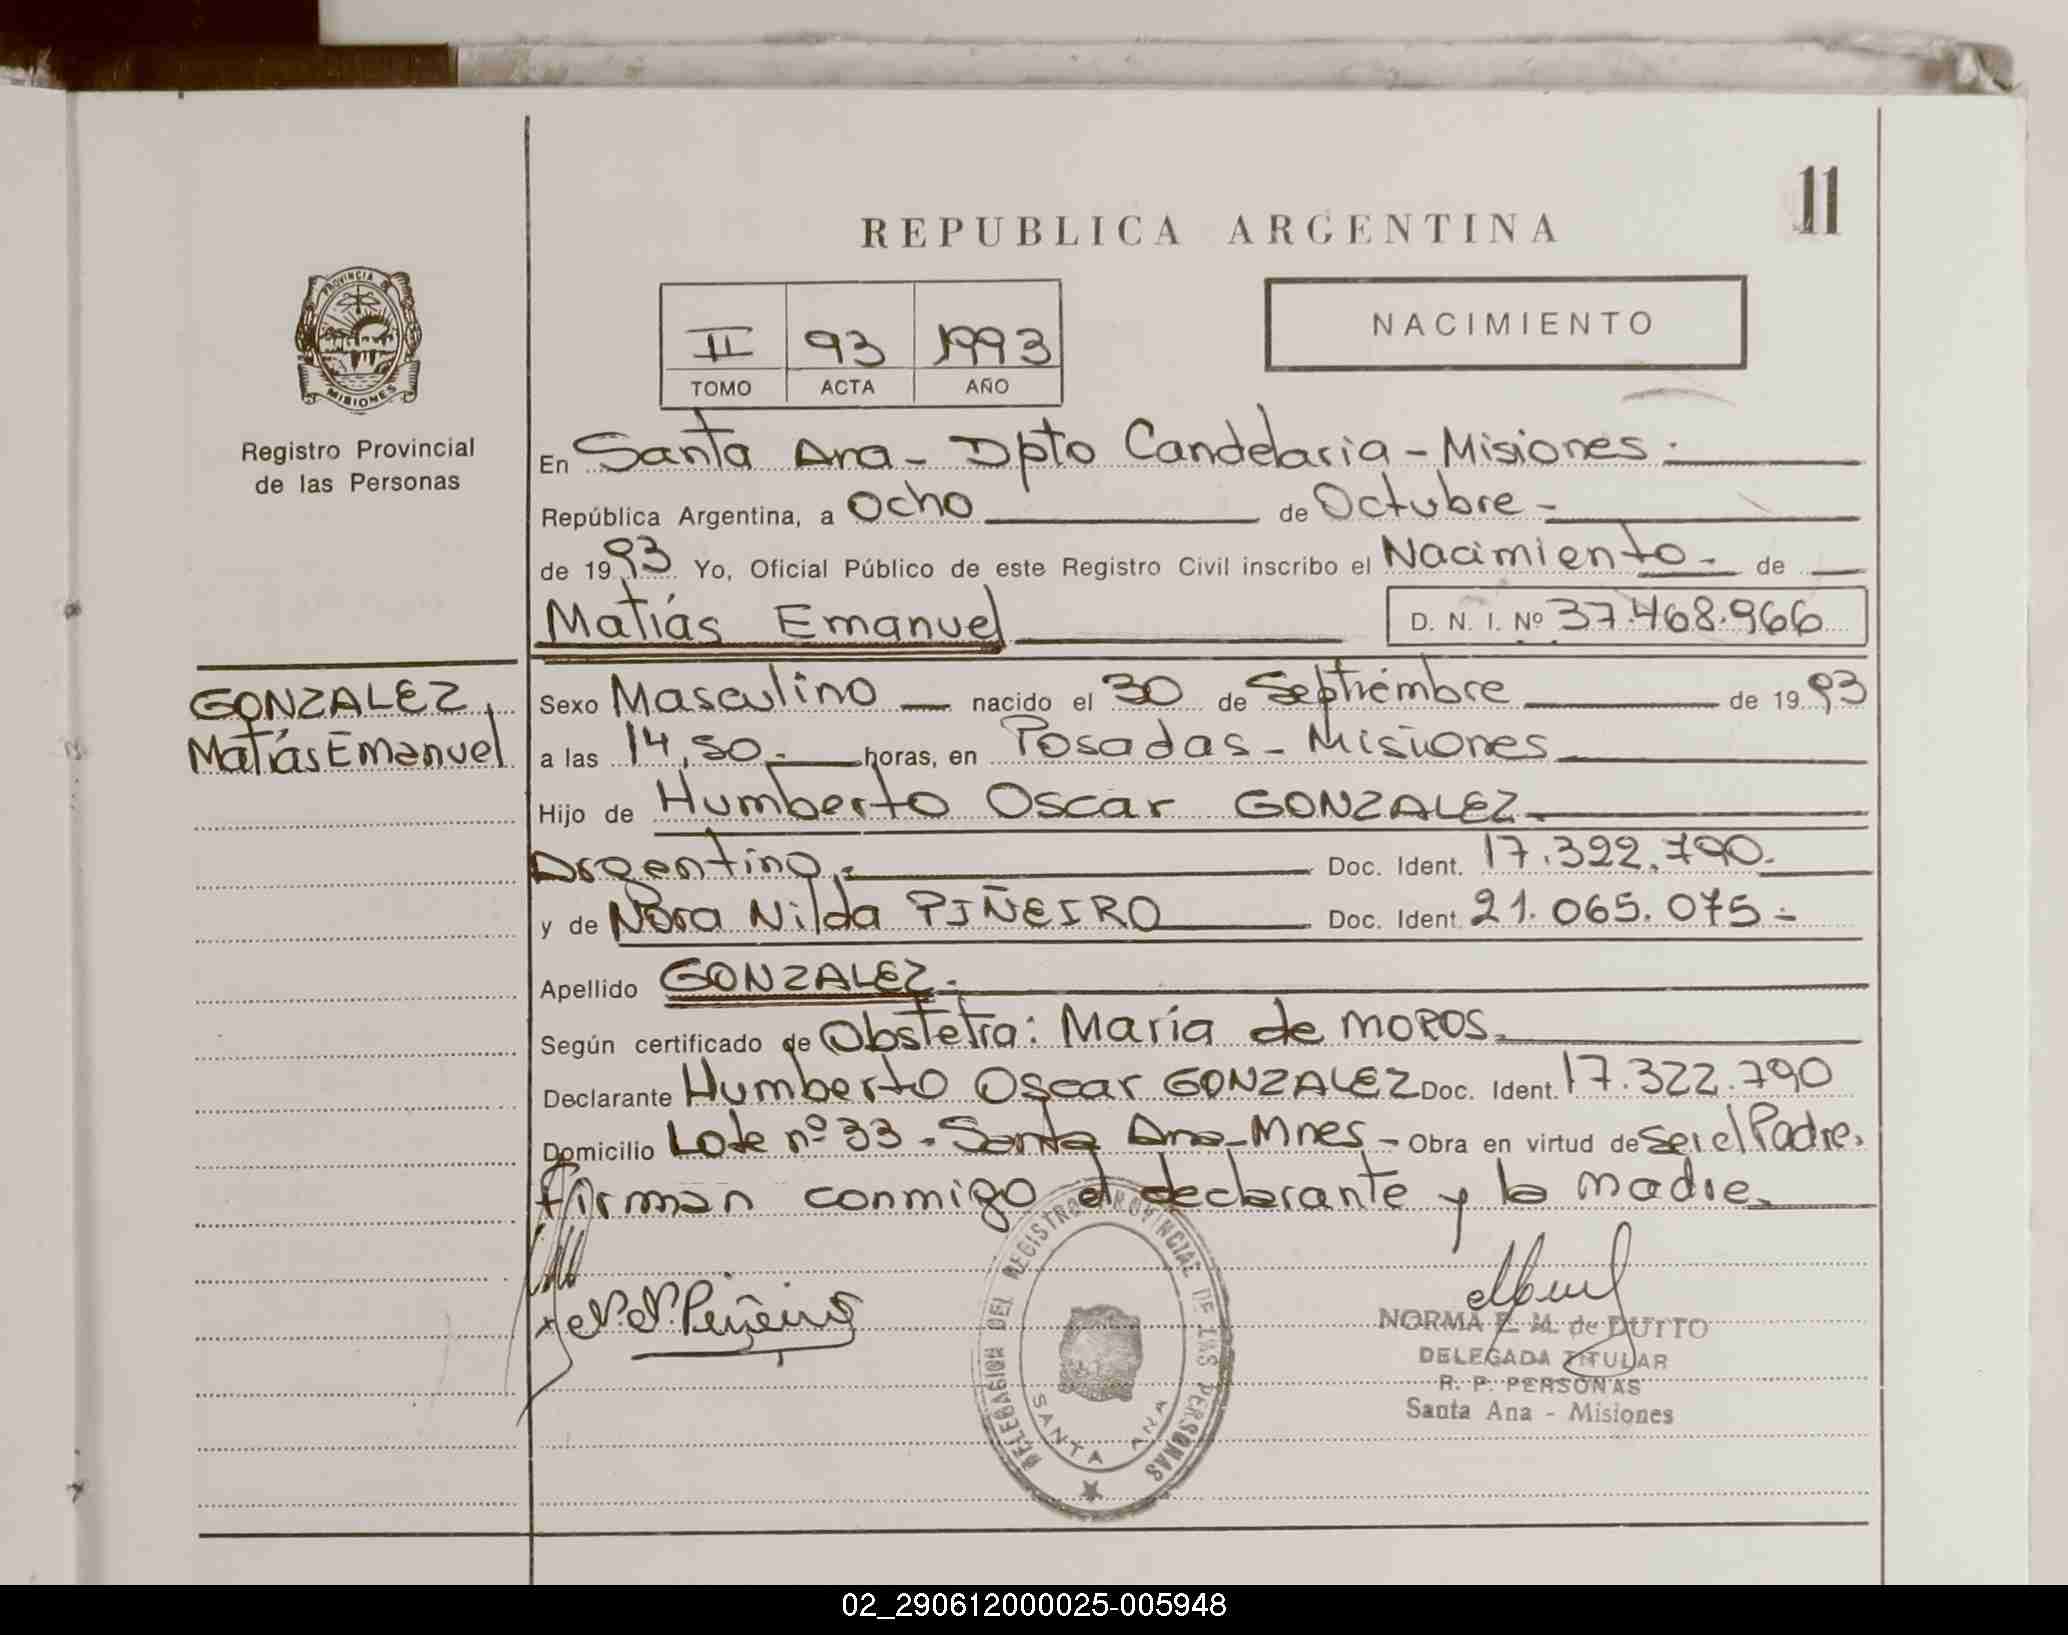 11
REPUBLICA ARGENTINA
PROVINCIA DE
MISIONES
Registro Provincial
de las Personas
II 93 1993
TOMO ACTA AÑO
NACIMIENTO
En Santa Ana - Dpto Candelaria - Misiones.
República Argentina, a Ocho de Octubre -
de 1993 Yo, Oficial Público de este Registro Civil inscribo el Nacimiento - de
Matías Emanuel D. N. I. Nº 37.468.966
GONZALEZ,
Matías Emanuel
Sexo Masculino nacido el 30 de Septiembre de 1993
a las 14,50.- horas, en Posadas - Misiones
Hijo de Humberto Oscar GONZALEZ.
Argentino.- Doc. Ident. 17.322.790.
y de Nora Nilda PIÑEIRO Doc. Ident. 21.065.075 -
Apellido GONZALEZ.-
Según certificado de Obstetra: María de MOROS.
Declarante Humberto Oscar GONZALEZ Doc. Ident. 17.322.790
Domicilio Lote nº 33 - Santa Ana - Mnes - Obra en virtud de Ser el Padre.
firman conmigo el declarante y la madre.
x N. N. Piñeiro
DELEGACION DEL REGISTRO PROVINCIAL DE LAS PERSONAS
SANTA ANA
NORMA E. M. de DUTTO
DELEGADA TITULAR
R. P. PERSONAS
Santa Ana - Misiones
02_290612000025-005948